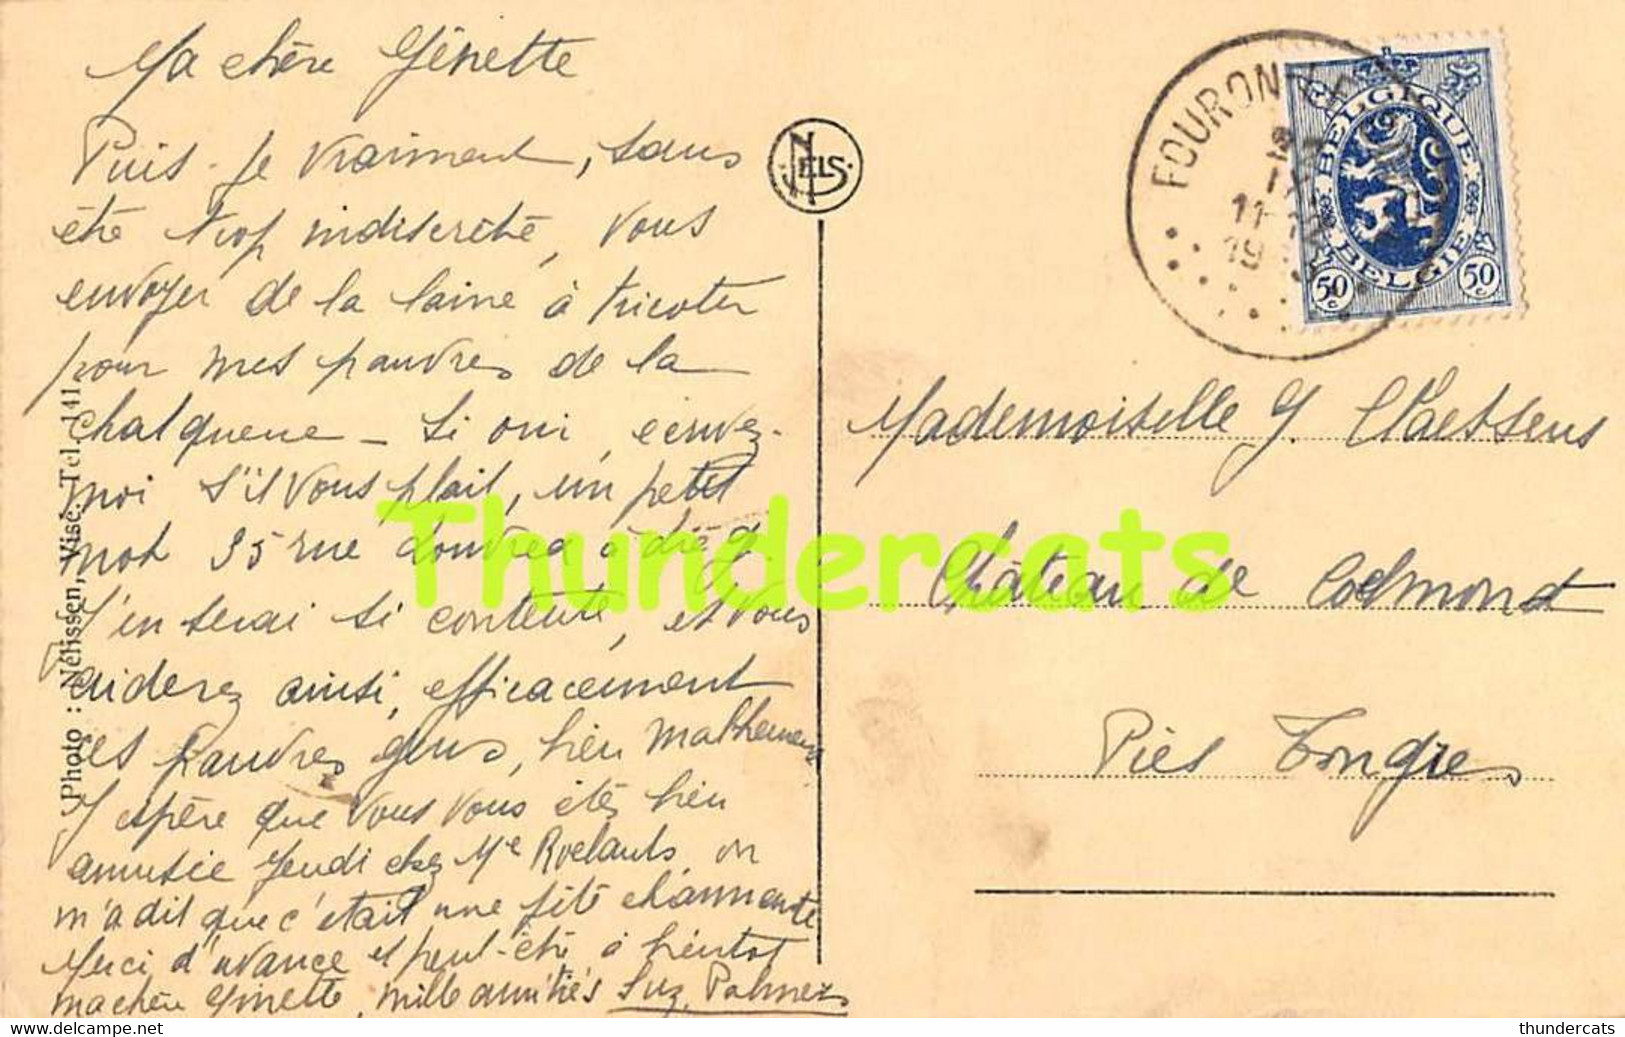 Ma chère Ginette
Puis-je vraiment, sans
être trop indiscrète, vous
envoyer de la laine à tricoter
pour mes pauvres de la
- si oui, écrivez-
moi s'il vous plait, un petit
mot 35 rue Louvrex à Liège
J'en serai si contente, et vous
aiderez ainsi, efficacement
ces pauvres gens, bien malheureux
J'espère que vous vous êtes bien
amusée jeudi chez Me Roelants, on
m'a dit que c'était une fête charmante
Merci d'avance et peut-être à bientôt
ma chère Ginette, mille amitiés Suz. Palmers
Photo : Nélissen, Visé. Tel. 141
NELS
FOURON
11
19
BELGIQUE
BELGIE
50 c
50 c
Mademoiselle G. Claessens
Château de Colmont
Près Tongres
Thundercats
thundercats (c) delcampe.net